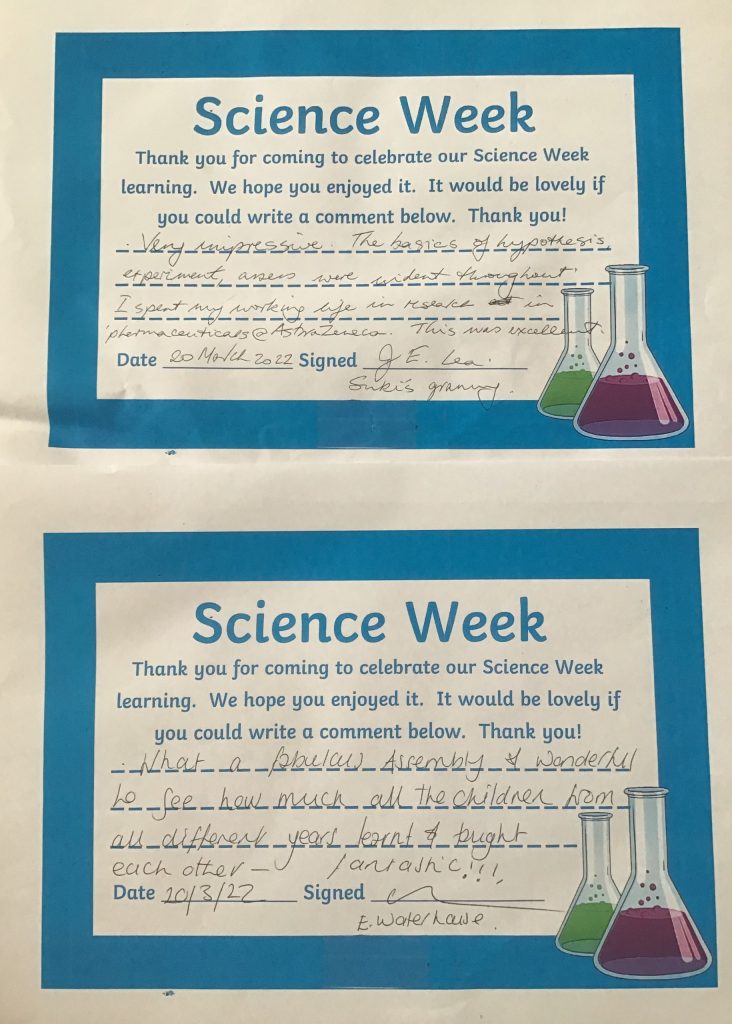 Science Week
Thank you for coming to celebrate our Science Week
learning. We hope you enjoyed it. It would be lovely if
you could write a comment below. Thank you!
Very impressive. The basics of hypothesis,
experiment, assess were evident throughout
I spent my working life in research in
pharmaceuticals @ AstraZeneca. This was excellent.
Date 20 March 2022 Signed J E. Lea.
Suki's granny.
Science Week
Thank you for coming to celebrate our Science Week
learning. We hope you enjoyed it. It would be lovely if
you could write a comment below. Thank you!
What a fabulous Assembly & wonderful
to see how much all the children from
all different years learnt & taught
each other — fantastic!!!
Date 20/3/22 Signed
E. Waterhouse.